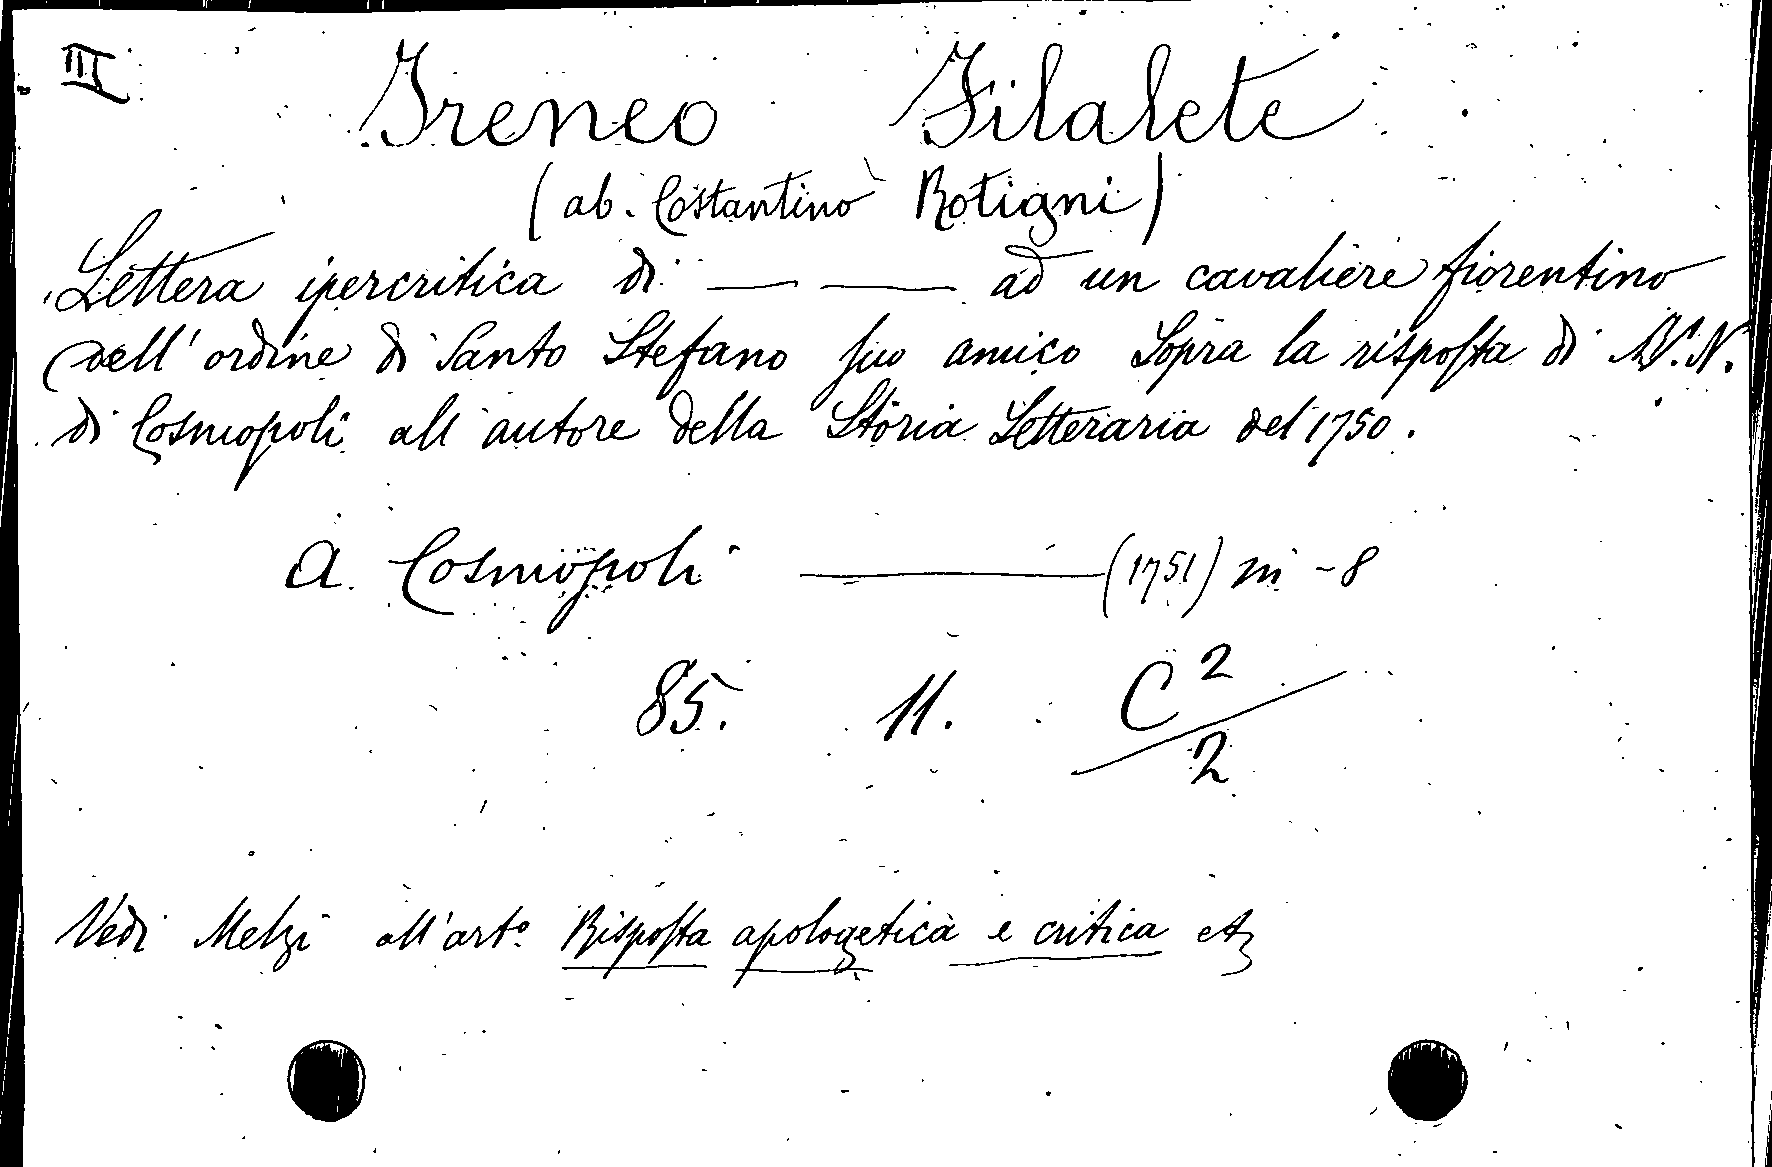 III
Ireneo Filalete
(ab. Costantino Rotigni)
Lettera ipercritica di — — ad un cavaliere fiorentino
dell' ordine di Santo Stefano ſuo amico Sopra la riſpoſta di N. N.
di Cosmopoli all' autore della Storia Letteraria del 1750.
A Cosmopoli — (1751) in -8
85. 11. C 2
2
Vedi Melzi all'art.º Riſpoſta apologetica e critica etc